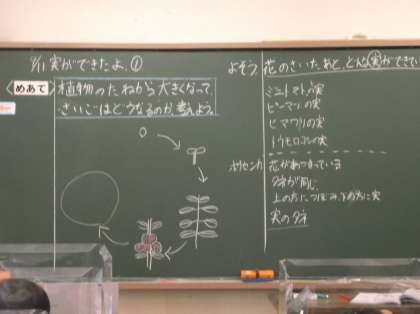 9/11 実ができたよ。①
めあて
植物のたねから大きくなって、
さいごはどうなるのか、考えよう。
よそう 花のさいたあと、どんな実ができ
ミニトマトの実
ピーマンの実
ヒマワリの実
トウモロコシの実
ホウセンカ 花があつまっている
タネが同じ
上の方につぼみ、下の方に実
実のタネ